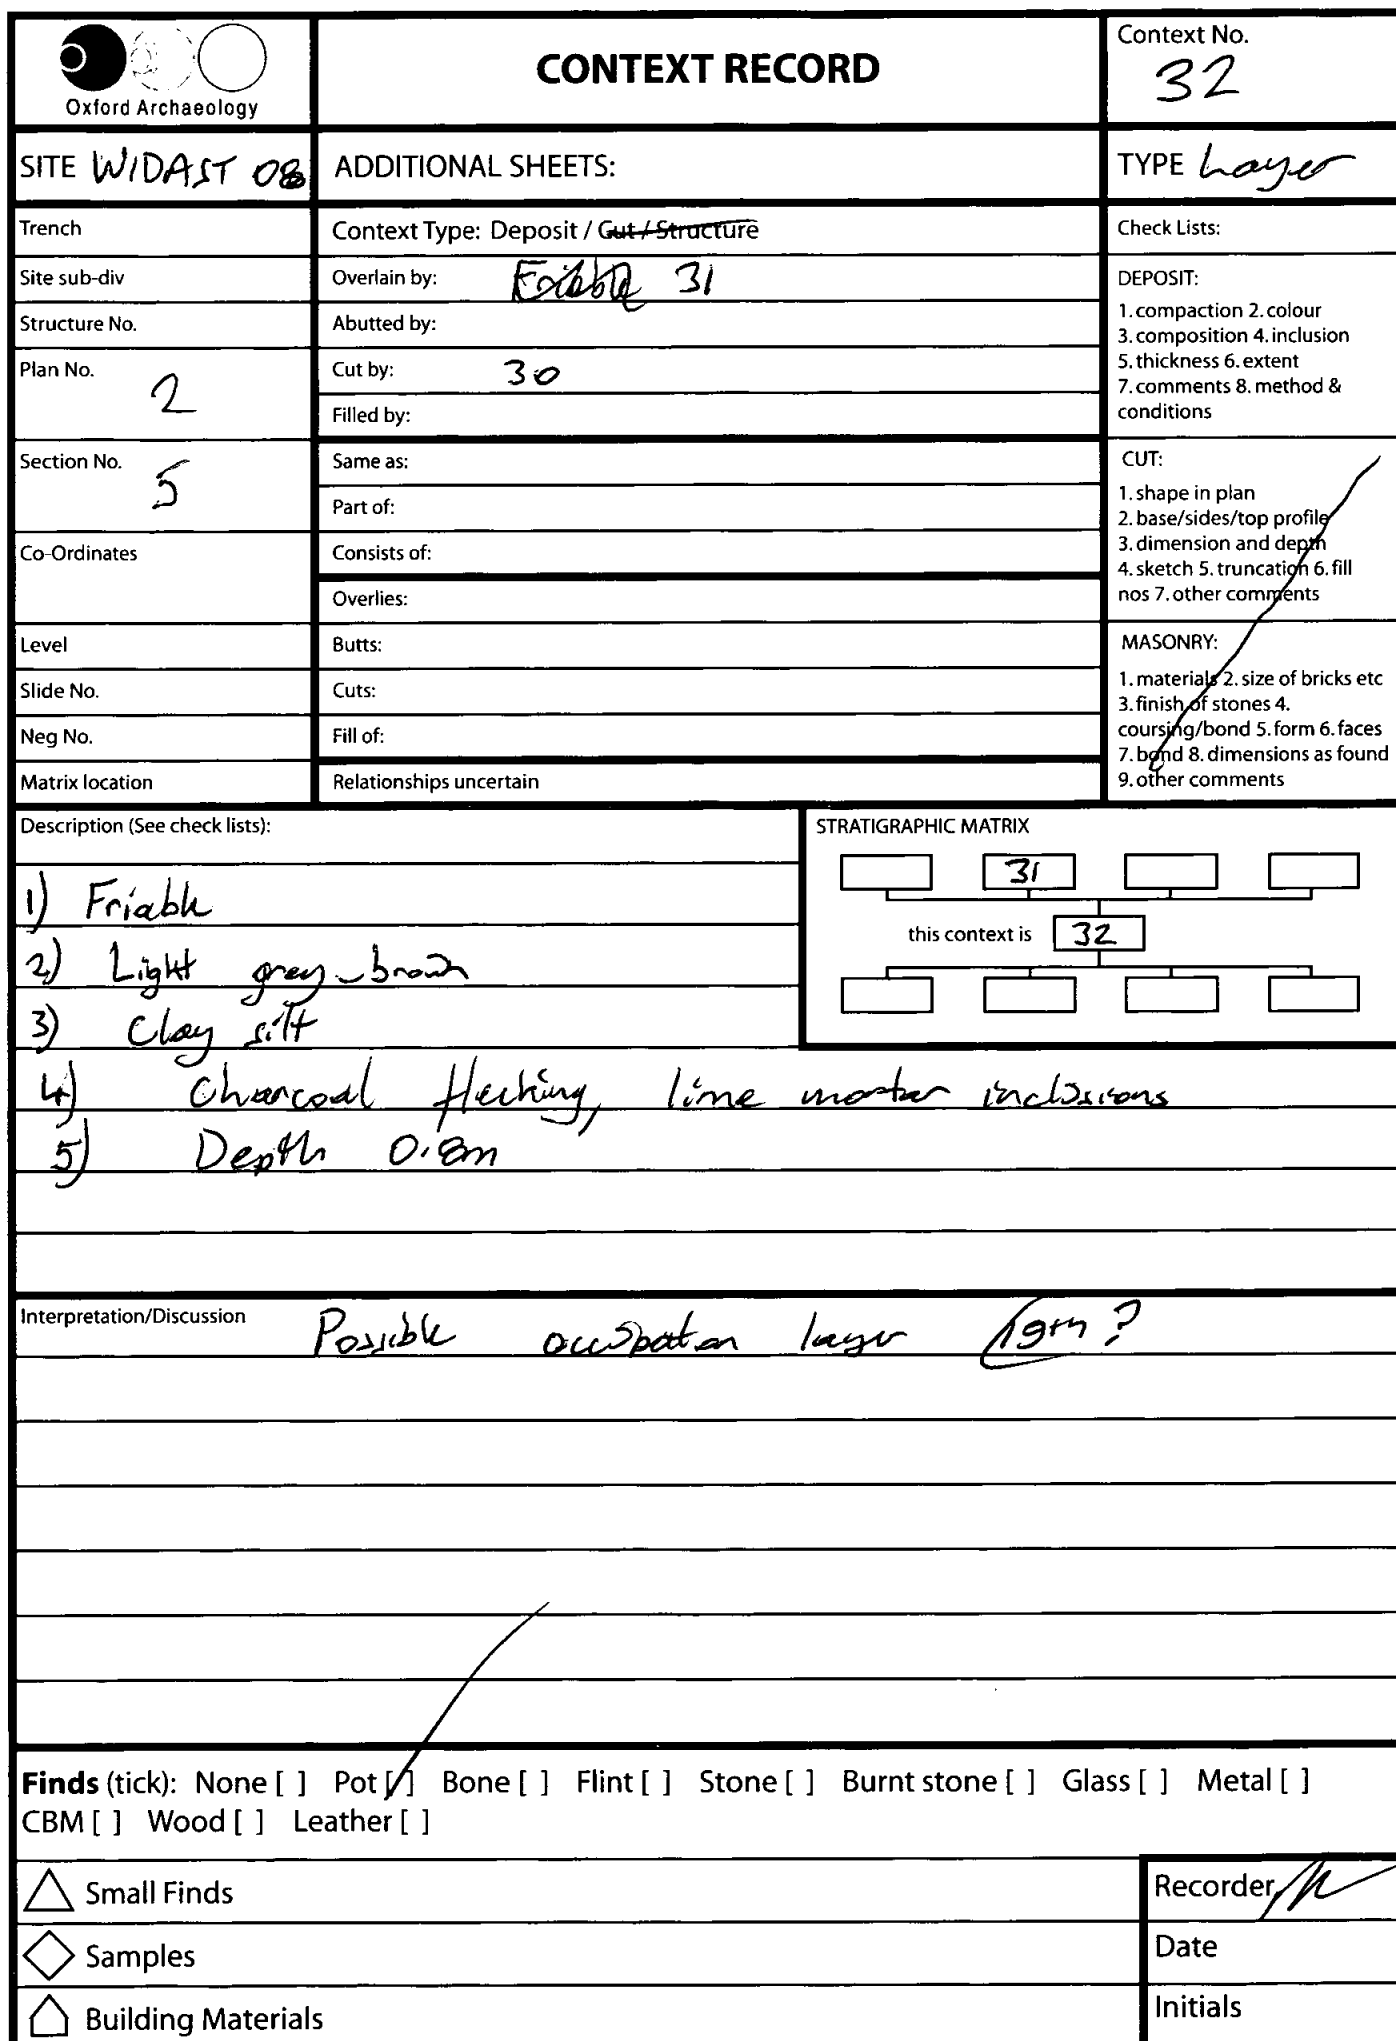 Oxford Archaeology
CONTEXT RECORD
Context No.
32
SITE WIDAST 08
ADDITIONAL SHEETS:
TYPE Layer
Trench
Site sub-div
Structure No.
Plan No. 2
Section No. 5
Co-Ordinates
Level
Slide No.
Neg No.
Matrix location
Context Type: Deposit / Cut / Structure
Overlain by: Friable 31
Abutted by:
Cut by: 30
Filled by:
Same as:
Part of:
Consists of:
Overlies:
Butts:
Cuts:
Fill of:
Relationships uncertain
Check Lists:
DEPOSIT:
1. compaction 2. colour
3. composition 4. inclusion
5. thickness 6. extent
7. comments 8. method &
conditions
CUT:
1. shape in plan
2. base/sides/top profile
3. dimension and depth
4. sketch 5. truncation 6. fill
nos 7. other comments
MASONRY:
1. materials 2. size of bricks etc
3. finish of stones 4.
coursing/bond 5. form 6. faces
7. bond 8. dimensions as found
9. other comments
Description (See check lists):
1) Friable
2) Light grey-brown
3) Clay silt
4) Charcoal flecking, lime mortar inclusions
5) Depth 0.8m
STRATIGRAPHIC MATRIX
31
this context is 32
Interpretation/Discussion Possible occupation layer 19th?
Finds (tick): None [ ] Pot [/] Bone [ ] Flint [ ] Stone [ ] Burnt stone [ ] Glass [ ] Metal [ ]
CBM [ ] Wood [ ] Leather [ ]
Small Finds
Samples
Building Materials
Recorder
Date
Initials